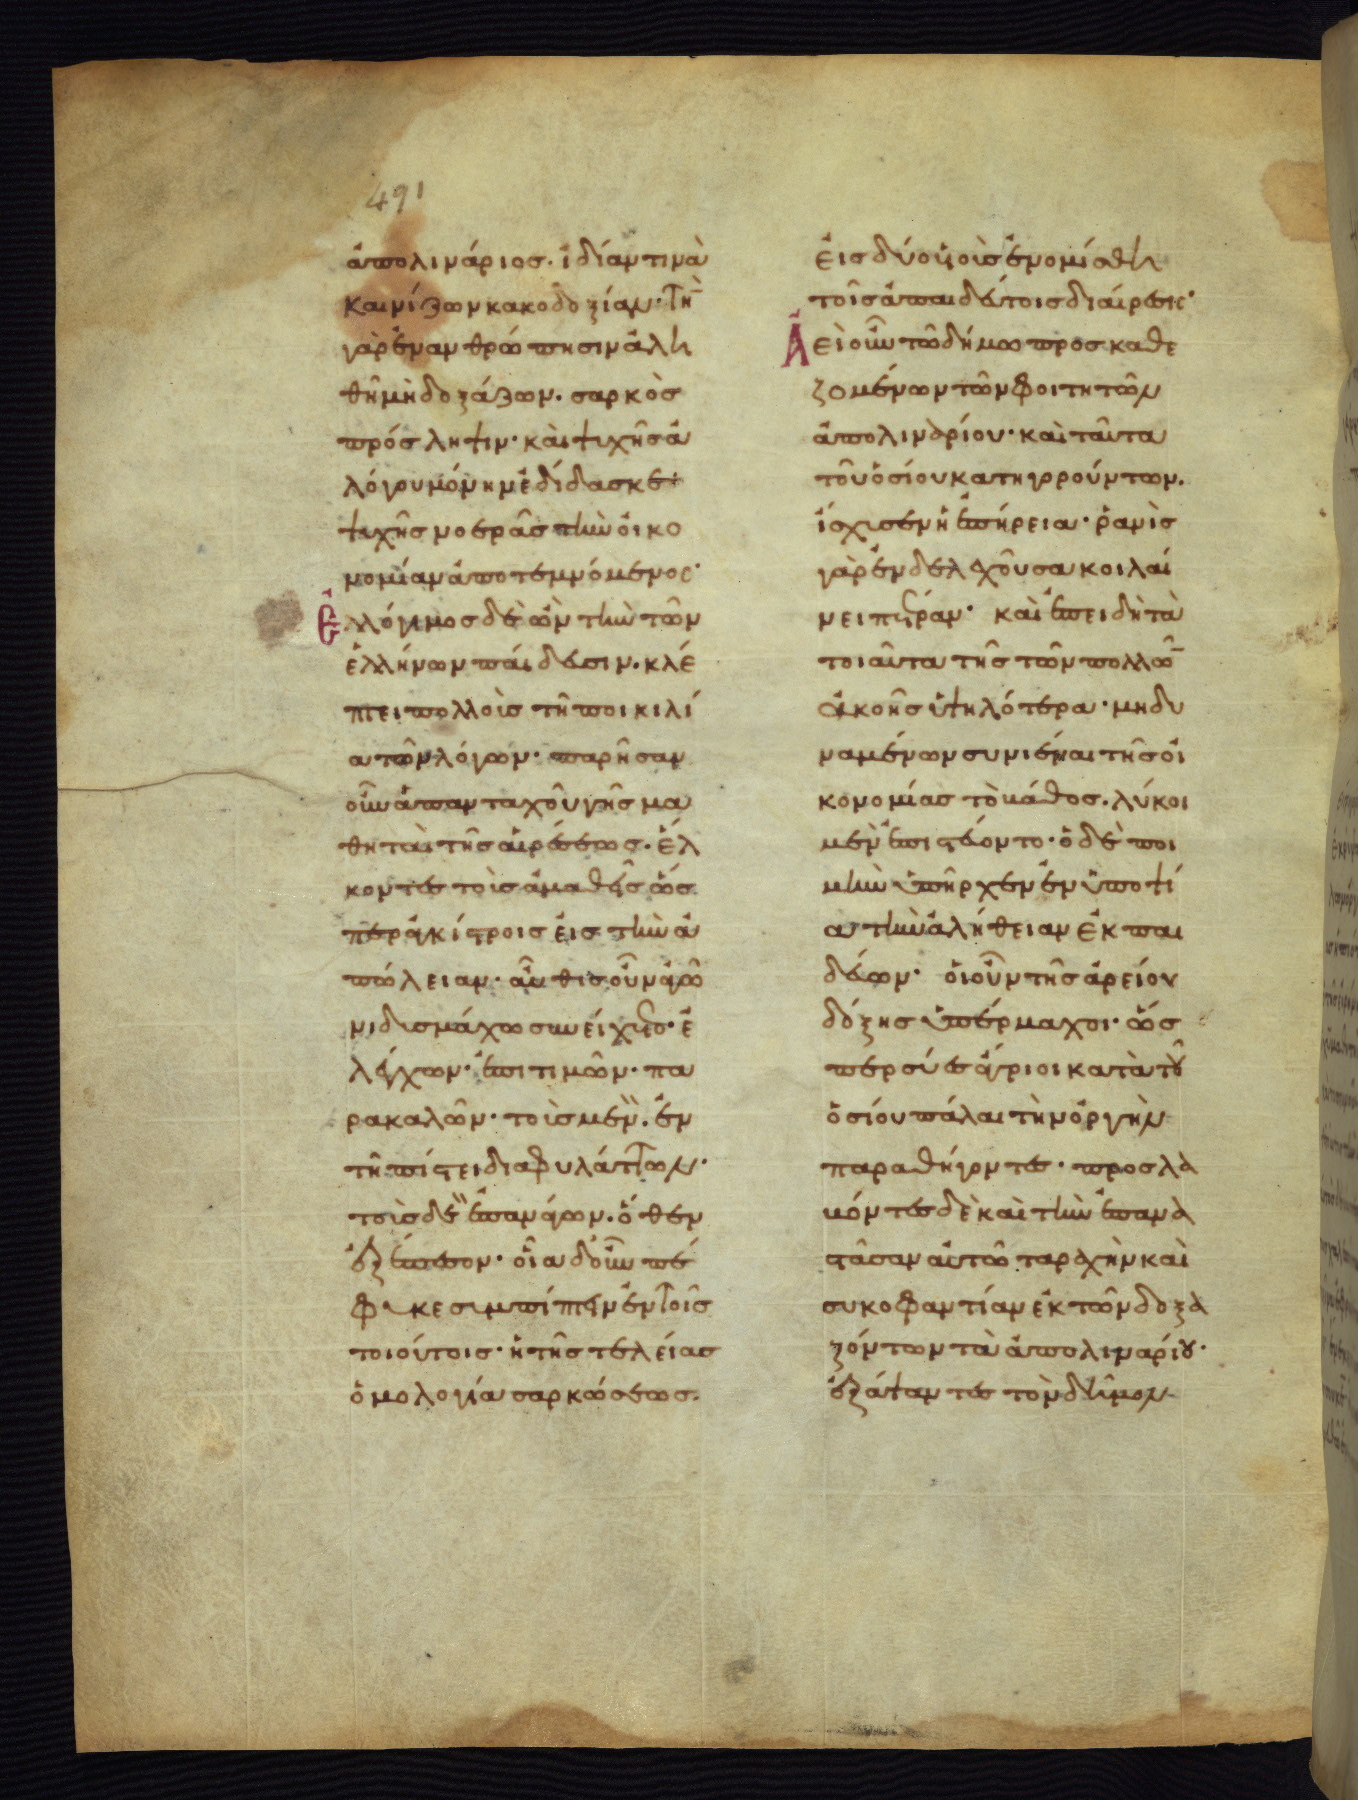 491
ἀπολινάριος. ἰδίαν τινὰ
καινίζων κακοδοξίαν· τὴν
γὰρ ἐνανθρώπησιν ἀλη
θῆ μὴ δοξάζων. σαρκὸς
πρόσληψιν· καὶ ψυχῆς ἀ
λόγου μόνην ἐδίδασκε·
ψυχῆς νοερᾶς τὴν οἰκο
νομίαν ἀποτεμνόμενος·
Ἐλλόγιμος δὲ ὢν τὴν τῶν
ἑλλήνων παίδευσιν. κλέ
πτει πολλοὺς τῆ ποικιλί
α τῶν λόγων· παρῆσαν
οὖν ἁπανταχοῦ γῆς μα
θηταὶ τῆς αἱρέσεως. ἕλ
κοντες τοὺς ἀμαθεῖς ὥς
περ ἀγκίστροις εἰς τὴν ἀ
πώλειαν· αὖθις οὖν ἀγῶ
νι δισμάχω συνείχετο· ἐ
λέγχων· ἐπιτιμῶν· πα
ρακαλῶν· τοὺς μὲν. ἐν
τῆ πίστει διαφυλάττων·
τοὺς δὲ ἐπανάγων. ὅθεν
ἐξέπεσον· οἷα δ' οὖν πέ
φυκε συμπίπτειν ἐν τοῖς
τοιούτοις· ἡ τῆς τελείας
ὁμολογία σαρκώσεως.
εἰς δύο υἱοὺς ἐνομίσθη
τοῖς ἀπαιδεύτοις διαίρεσις·
Ἀεὶ οὖν τῶ δήμω προσκαθε
ζομένων τῶν φοιτητῶν
ἀπολιναρίου· καὶ ταῦτα
τοῦ ὁσίου κατηγορούντων.
ἴσχυσεν ἡ ἐπήρεια· ῥανὶς
γὰρ ἐνδελεχοῦσα κοιλαί
νει πέτραν· καὶ ἐπειδὴ τὰ
τοιαῦτα τῆς τῶν πολλῶν
ἀκοῆς ὑψηλότερα· μὴ δυ
ναμένων συνιέναι τῆς οἰ
κονομίας τὸ βάθος. λύκοι
μὲν ἐπιστεύοντο· ὁ δὲ ποι
μὴν ὑπῆρχεν ἐν ὑποψί
α τὴν ἀλήθειαν ἐκπαι
δεύων· οἱ οὖν τῆς ἀρείου
δόξης ὑπέρμαχοι· ὥς
περ σύες ἄγριοι κατὰ τοῦ
ὁσίου πάλαι τὴν ὀργὴν
παραθήγοντες· προσλα
βόντες δὲ καὶ τὴν ἐπανα
στᾶσαν αὐτῶ ταραχὴν καὶ
συκοφαντίαν ἐκ τῶν δοξα
ζόντων τὰ ἀπολιναρίου·
ἐξάψαντες τὸν δῆμον